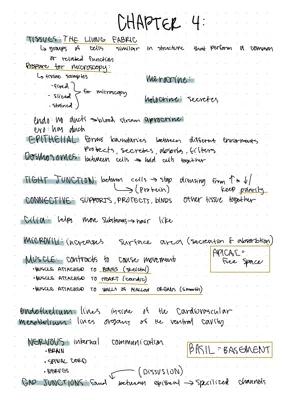 CHAPTER 4:
TISSUES THE LIVING FABRIC
↳ groups of cells similar in structure that perform a common
or related function
Prepare for microscopy:
↳ tissue samples
- fixed
- sliced
- stained
for microscopy
merocrine
holocrine secretes
endo no ducts → blood stream apocrine
exo has duct
EPITHELIAL forms boundaries between different environments
protects, secretes, absorbs, filters
Desmosomes between cells → hold cells together
TIGHT JUNCTION between cells → stop from ↑ → ↓/
(protein) keep polarity
CONNECTIVE SUPPORTS, PROTECTS, BINDS other tissue together
Cilia helps move substances → hair like
MICROVILLI increases surface area (secretion & absorption)
APICAL-
Free Space
MUSCLE contracts to cause movement
- MUSCLE ATTACHED TO BONES (skeletal)
- MUSCLE ATTACHED TO HEART (cardiac)
- MUSCLE ATTACHED TO WALLS OF HOLLOW ORGANS (smooth)
Endothelium lines inside of the Cardiovascular
mesothelium lines organs of the ventral cavity
NERVOUS internal communication
- BRAIN
- SPINAL CORD
- NERVES
BASIL - BASEMENT
(DIFFUSION)
GAP JUNCTIONS found between epithelial → specialized channels